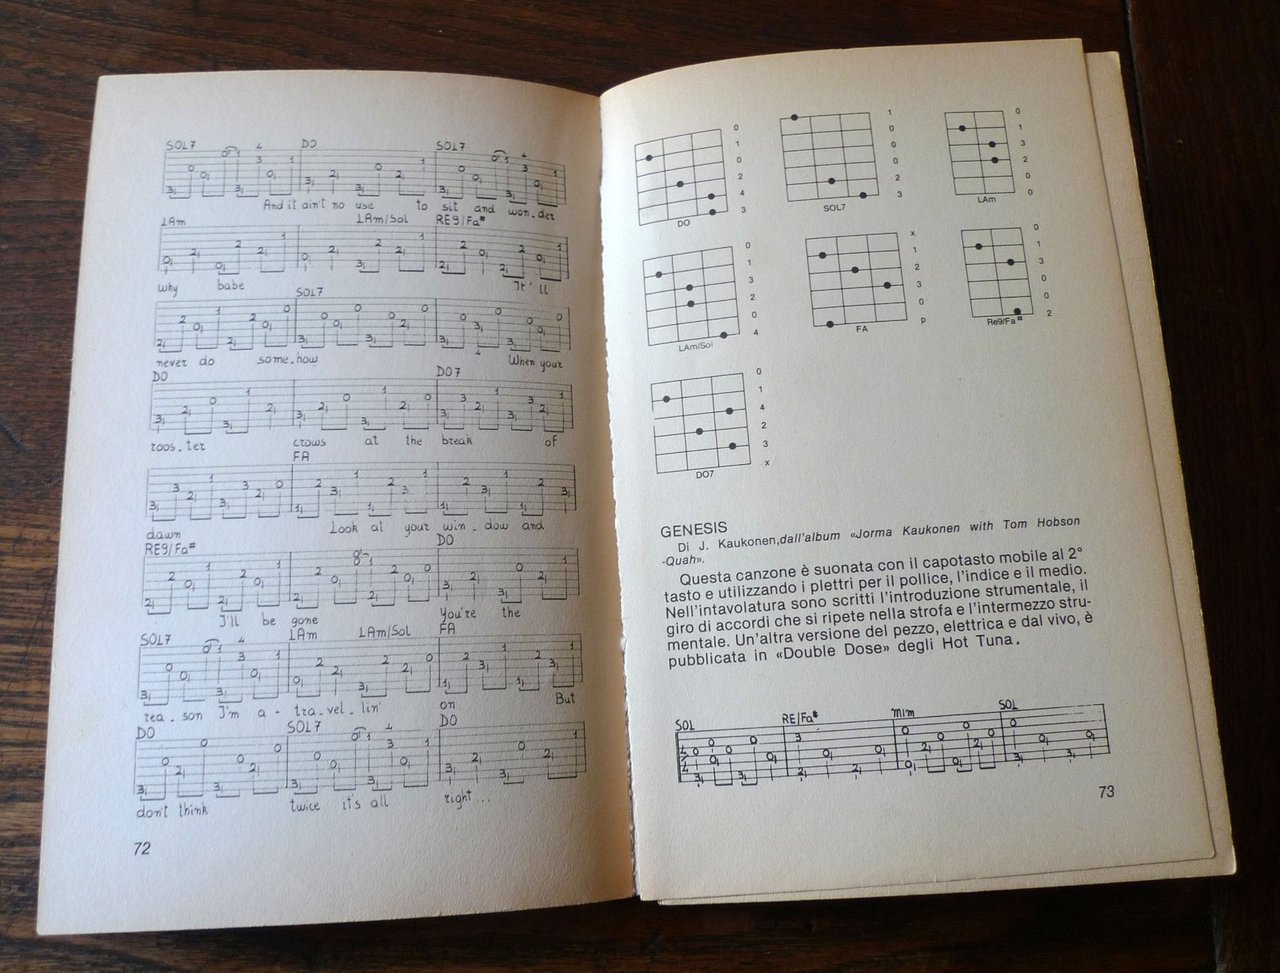 SOL7 DO SOL7
And it ain't no use to sit and won-der
LAm LAm/Sol RE9/Fa#
why babe It'll
SOL7
never do some-how When your
DO DO7
roos-ter crows at the break of
FA
dawn Look at your win-dow and
RE9/Fa# DO
I'll be gone You're the
SOL7 LAm LAm/Sol FA
rea-son I'm a-tra-vel-lin' on But
DO SOL7 DO
don't think twice it's all right...
72
0
1
0
2
4
3
DO
1
0
0
0
2
3
SOL7
0
1
3
2
0
0
LAm
0
1
3
2
0
4
LAm/Sol
x
1
2
3
0
p
FA
0
1
3
0
0
2
Re9/Fa#
0
1
4
2
3
x
DO7
GENESIS
Di J. Kaukonen, dall'album «Jorma Kaukonen with Tom Hobson
-Quah».
Questa canzone è suonata con il capotasto mobile al 2°
tasto e utilizzando i plettri per il pollice, l'indice e il medio.
Nell'intavolatura sono scritti l'introduzione strumentale, il
giro di accordi che si ripete nella strofa e l'intermezzo stru-
mentale. Un'altra versione del pezzo, elettrica e dal vivo, è
pubblicata in «Double Dose» degli Hot Tuna.
SOL RE/Fa# MIm SOL
73